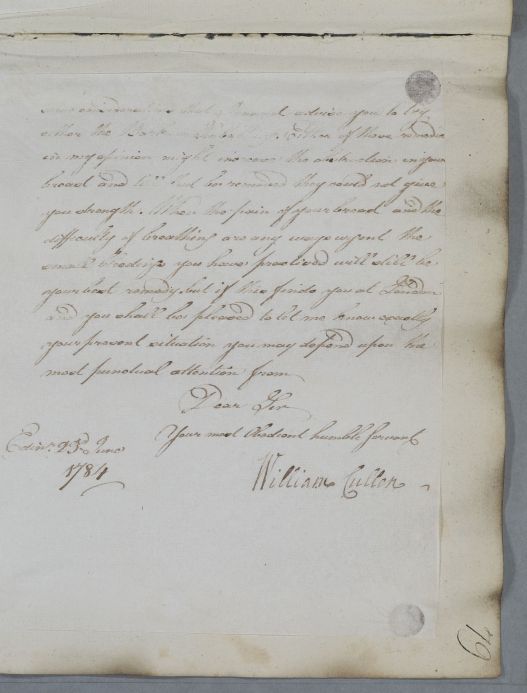 that I cannot advise you to try
either the Bark or Either of these remedies
in my opinion might increase the obstruction in your
breast and till that be removed they could not give
you strength. When the pain of your breast and the
difficulty of breathing are any ways urgent the
small bleedings you have practised will still be
your best remedy, but if this finds you at London
and you shall be pleased to let me know exactly
your present situation you may depend upon the
most punctual attention from
Dear Sir
Your most Obedient humble Servant
William Cullen
Edinr. 23d. June
1784
61